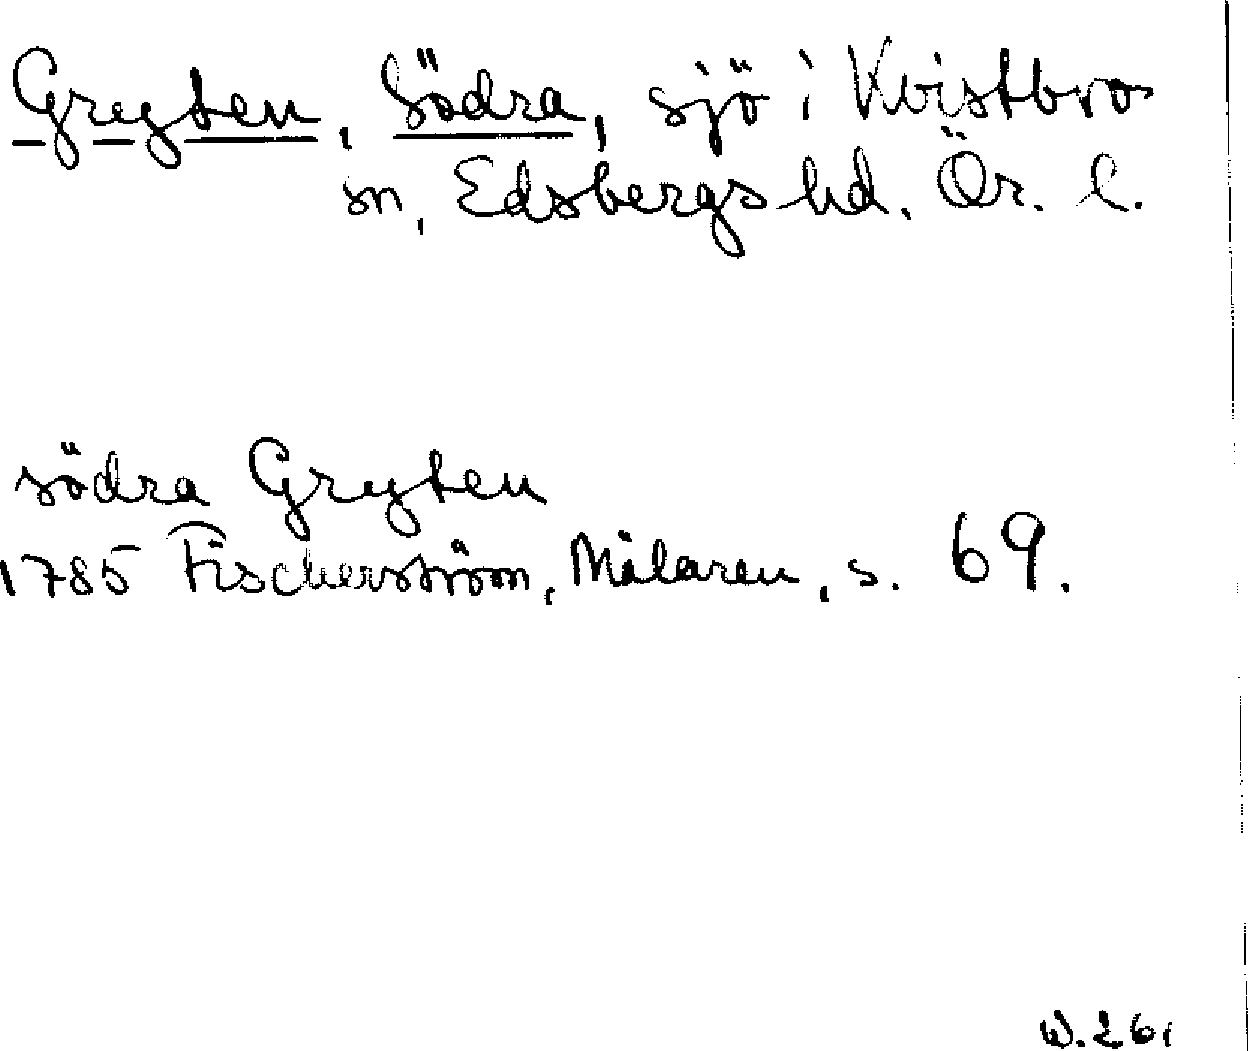 Gryten, Södra, sjö i Kvistbro
sn, Edsbergs hd. Ör. l.
södra Gryten
1785 Fischerström, Mälaren, s. 69.
W. 261